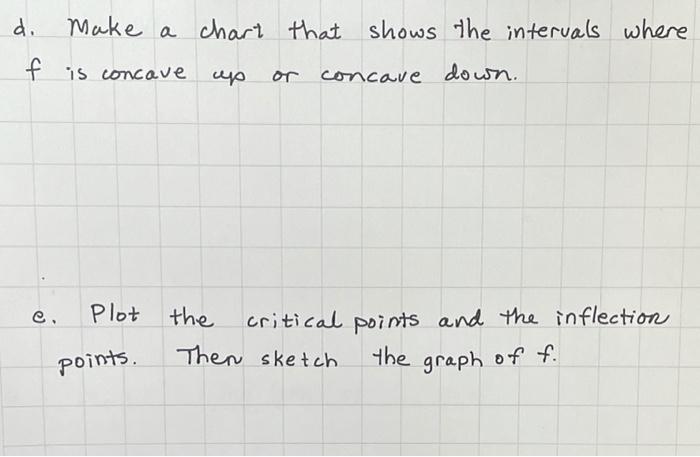 d. Make a chart that shows the intervals where
f is concave up or concave down.
e. Plot the critical points and the inflection
points. Then sketch the graph of f.